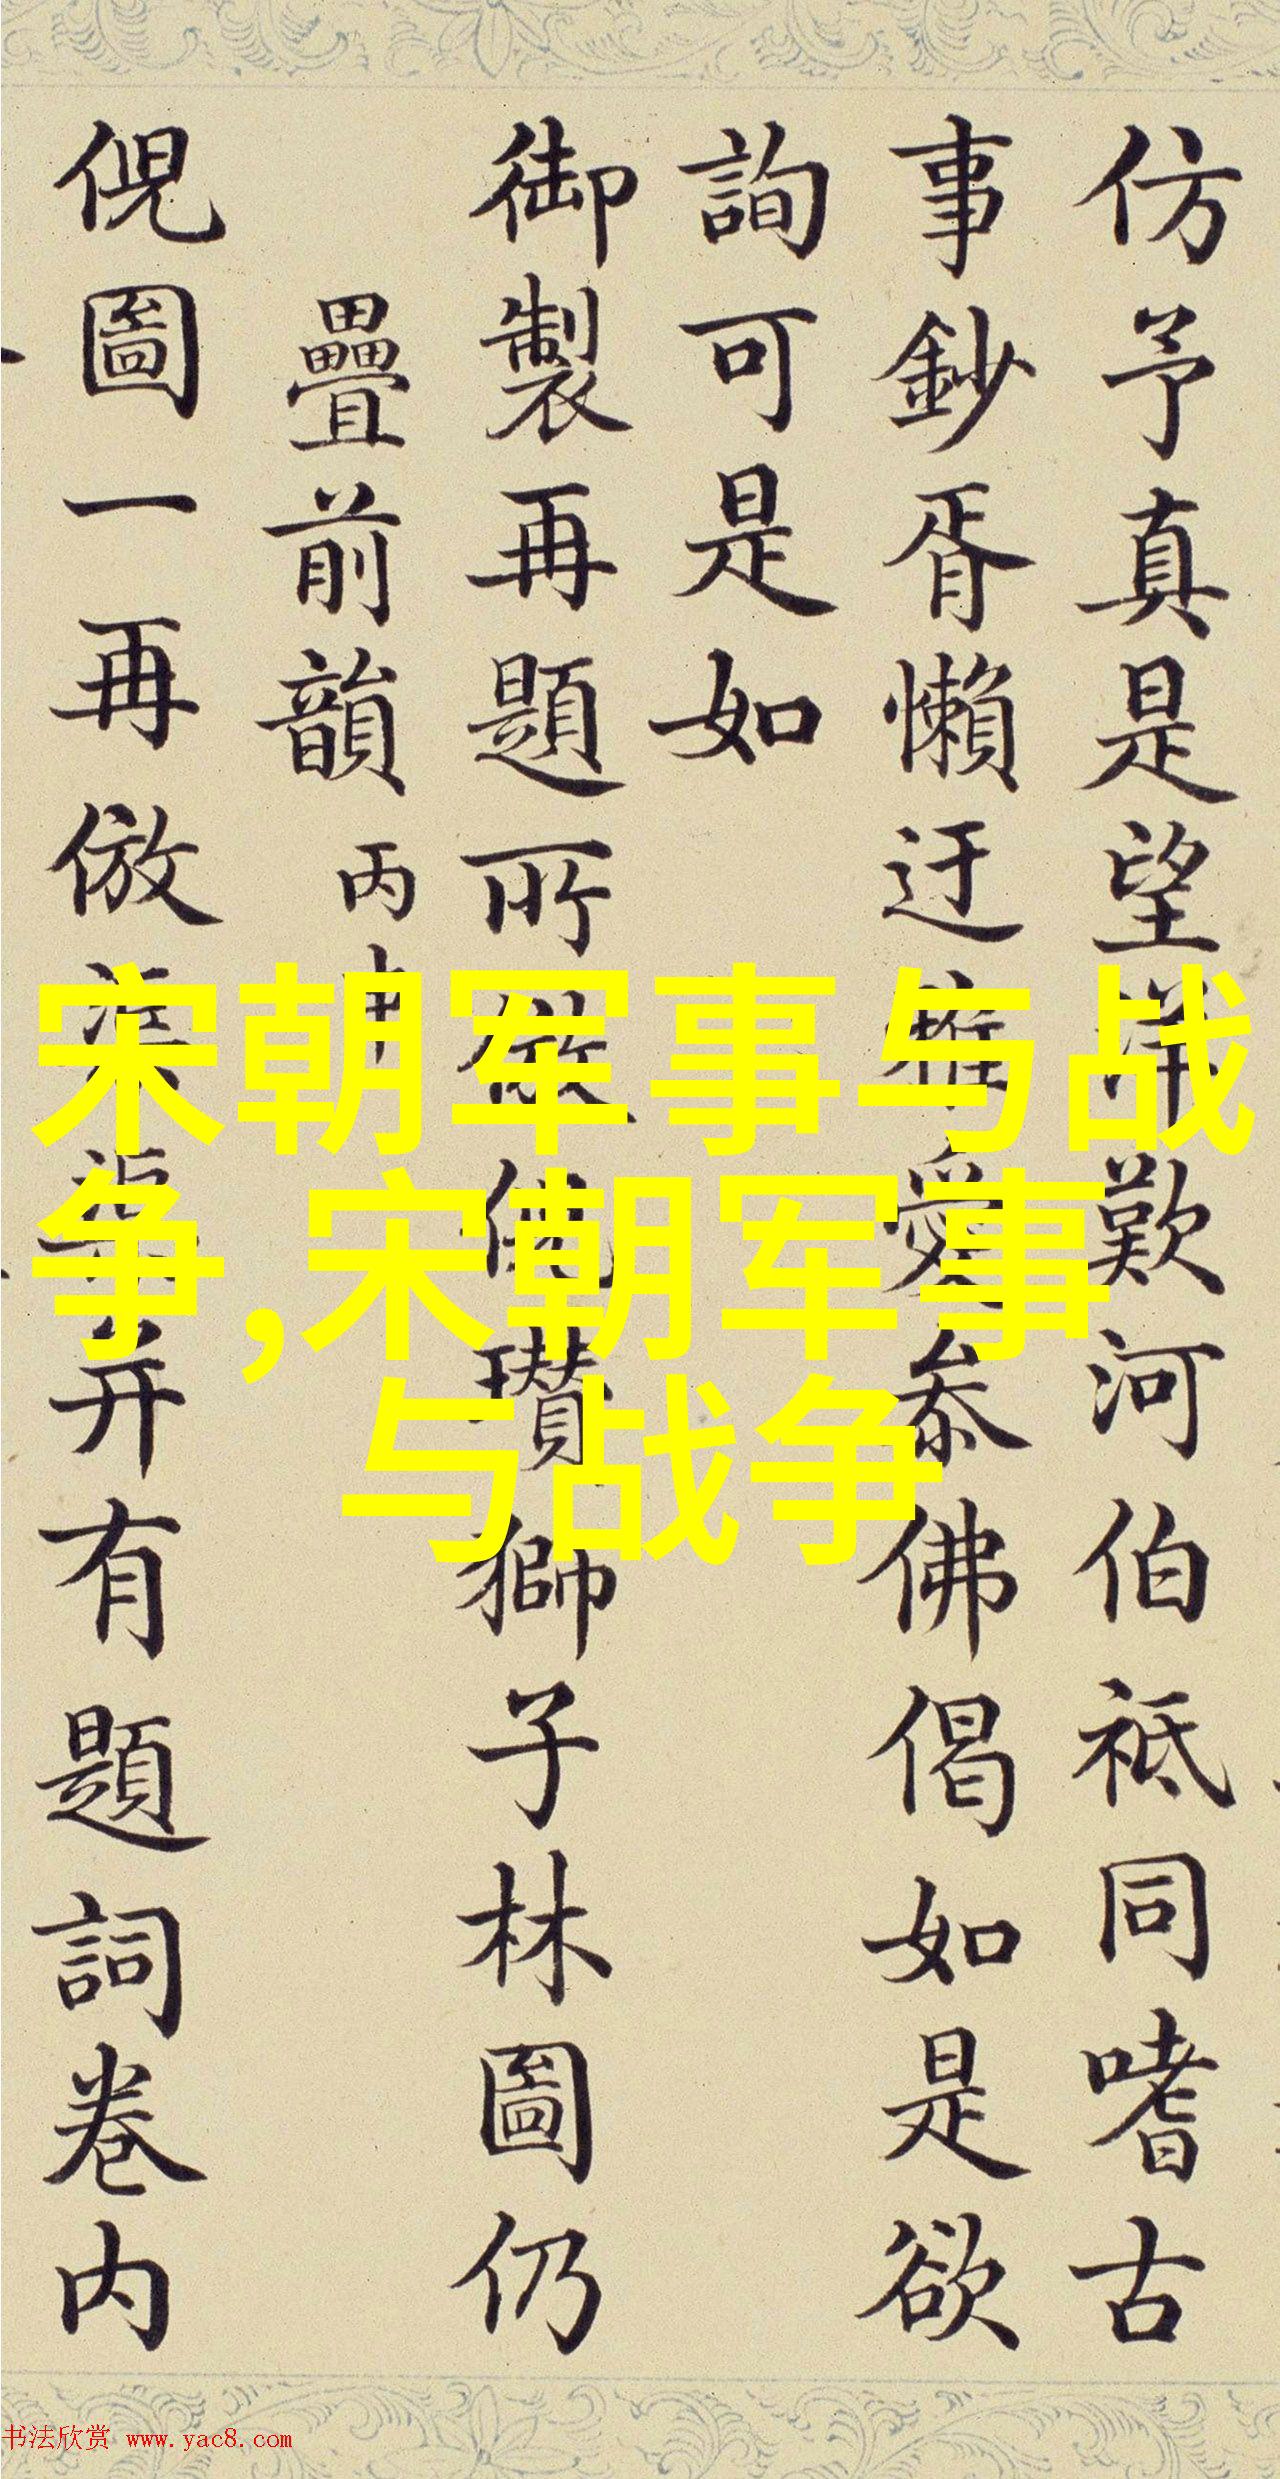 仿予真是望洋歎河伯祇同嗜古
事鈔胥懶迂雅愛叅佛偈如是欲
詢可是如
御製再題所倣倪瓚獅子林圖仍
疊前韻 丙申
倪圖一再倣並弆有題詞卷内
宋朝军事与战
争,宋朝军事
与战争
书法欣赏 www.yac8.com